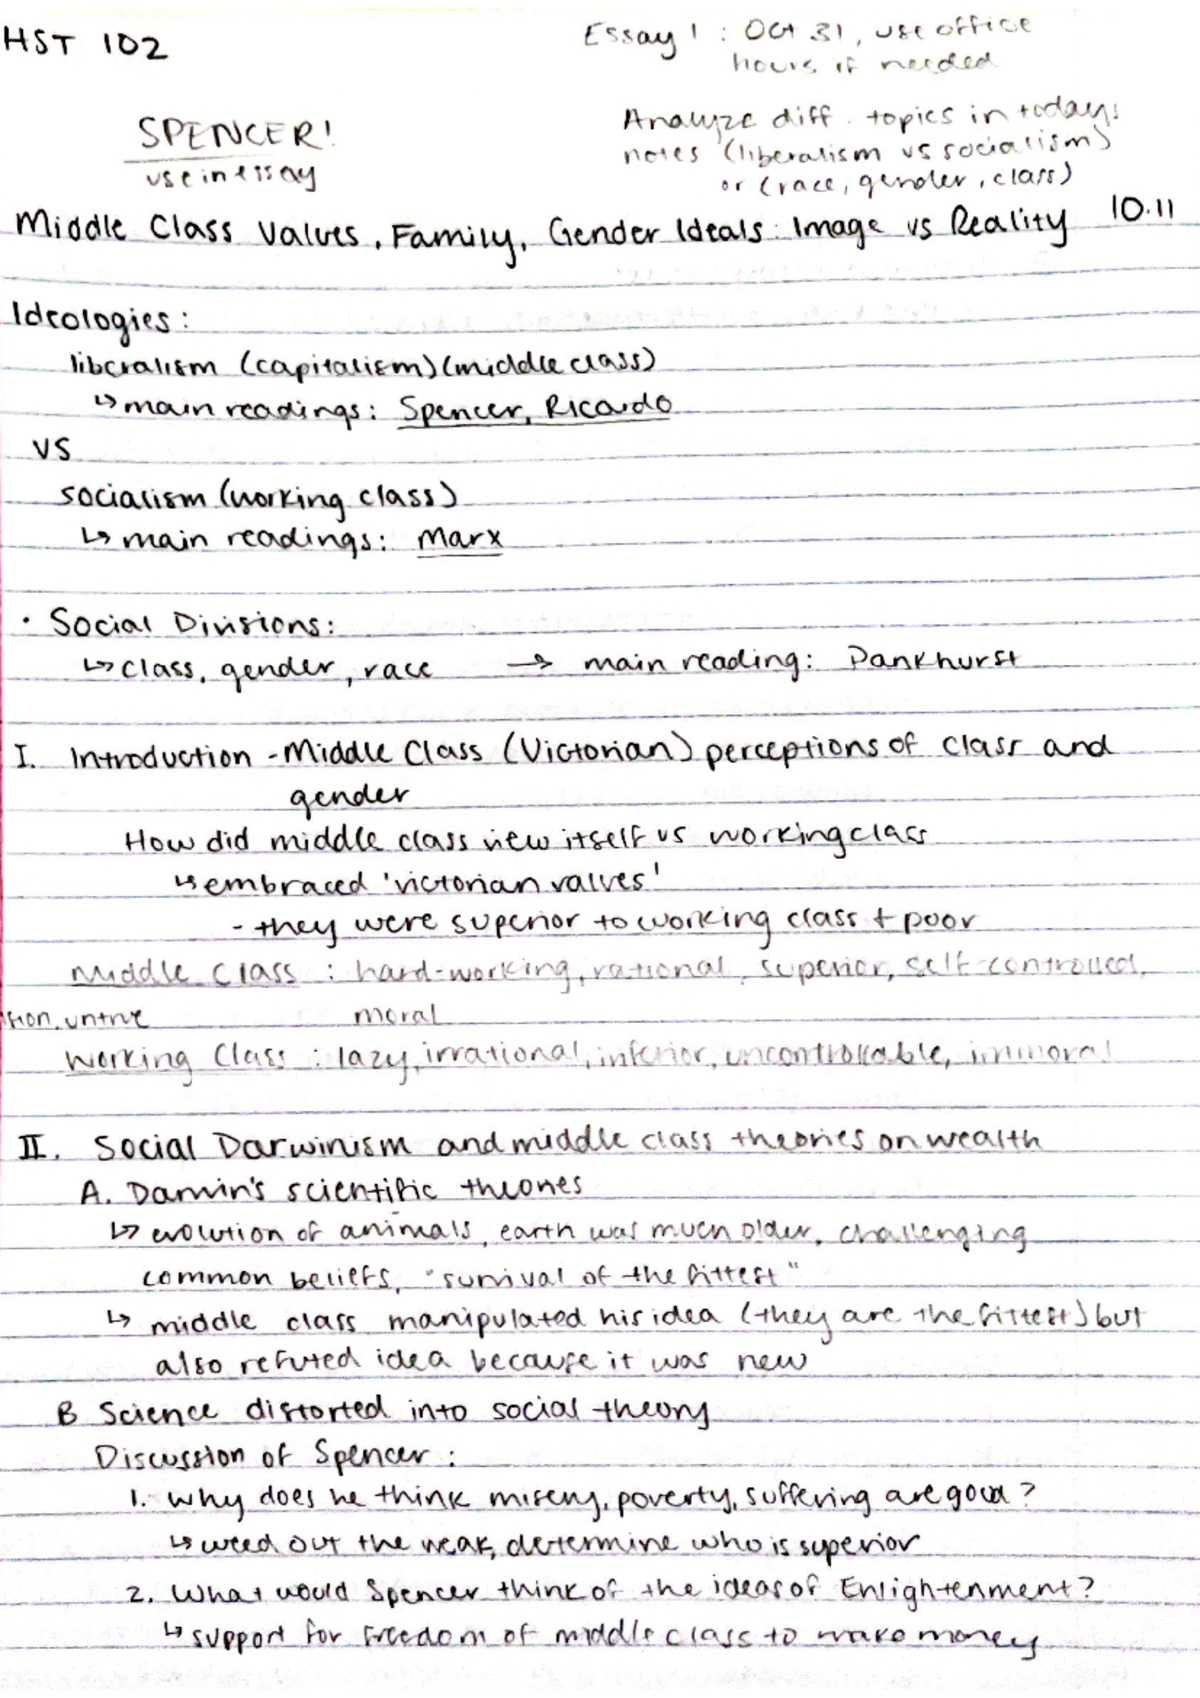 HST 102
Essay 1 : Oct 31, use office
hours if needed
SPENCER!
use in essay
Analyze diff. topics in todays
notes (liberalism vs socialism)
or (race, gender, class)
Middle Class Values, Family, Gender Ideals: Image vs Reality 10.11
Ideologies:
liberalism (capitalism) (middle class)
↳ main readings: Spencer, Ricardo
VS
socialism (working class)
↳ main readings: Marx
· Social Divisions:
↳ class, gender, race → main reading: Pankhurst
I. Introduction - Middle Class (Victorian) perceptions of class and
gender
How did middle class view itself vs working class
↳ embraced 'victorian values'
- they were superior to working class + poor
Middle Class : hard-working, rational, superior, self-controlled,
tion, untrue moral
Working Class : lazy, irrational, inferior, uncontrollable, immoral
II. Social Darwinism and middle class theories on wealth
A. Darwin's scientific theories
↳ evolution of animals, earth was much older, challenging
common beliefs, "survival of the fittest"
↳ middle class manipulated his idea (they are the fittest) but
also refuted idea because it was new
B Science distorted into social theory
Discussion of Spencer:
1. Why does he think misery, poverty, suffering are good?
↳ weed out the weak, determine who is superior
2. What would Spencer think of the ideas of Enlightenment?
↳ support for freedom of middle class to make money